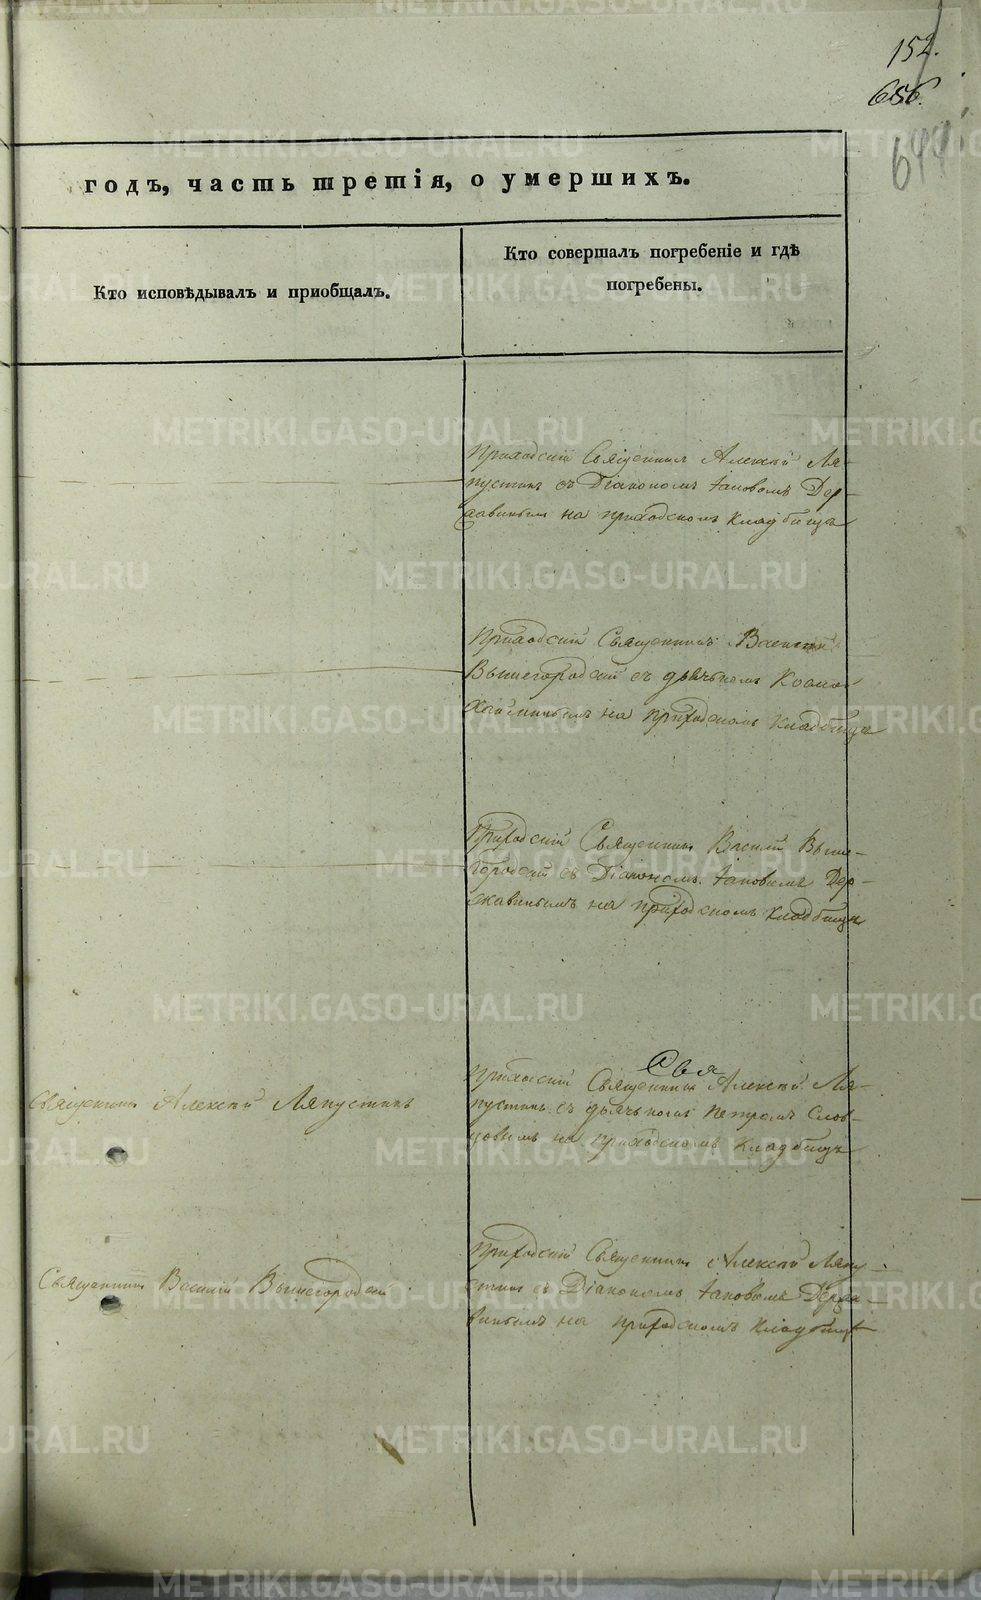 152.
656.
644
годъ, часть третія, о умершихъ.
Кто исповѣдывалъ и приобщалъ.
Кто совершалъ погребеніе и гдѣ
погребены.
Приходскій Священникъ Алексѣй Ля-
пустинъ съ Діакономъ Іаковомъ Дер-
жавинымъ на приходскомъ кладбищѣ
Приходскій Священникъ Василій
Вышегородскій съ дьячкомъ Космою
на приходскомъ кладбищѣ
Приходскій Священникъ Василій Выше-
городскій съ Діакономъ Іаковомъ Дер-
жавинымъ на приходскомъ кладбищѣ
Свя
Священникъ Алексѣй Ляпустинъ
Приходскій Священникъ Алексѣй Ля-
пустинъ съ дьячкомъ Петромъ Слов-
цовымъ на приходскомъ кладбищѣ
Священникъ Василій Вышегородскій
Приходскій Священникъ Алексѣй Ляпу-
стинъ съ Діакономъ Іаковомъ Держа-
винымъ на приходскомъ кладбищѣ
METRIKI.GASO-URAL.RU